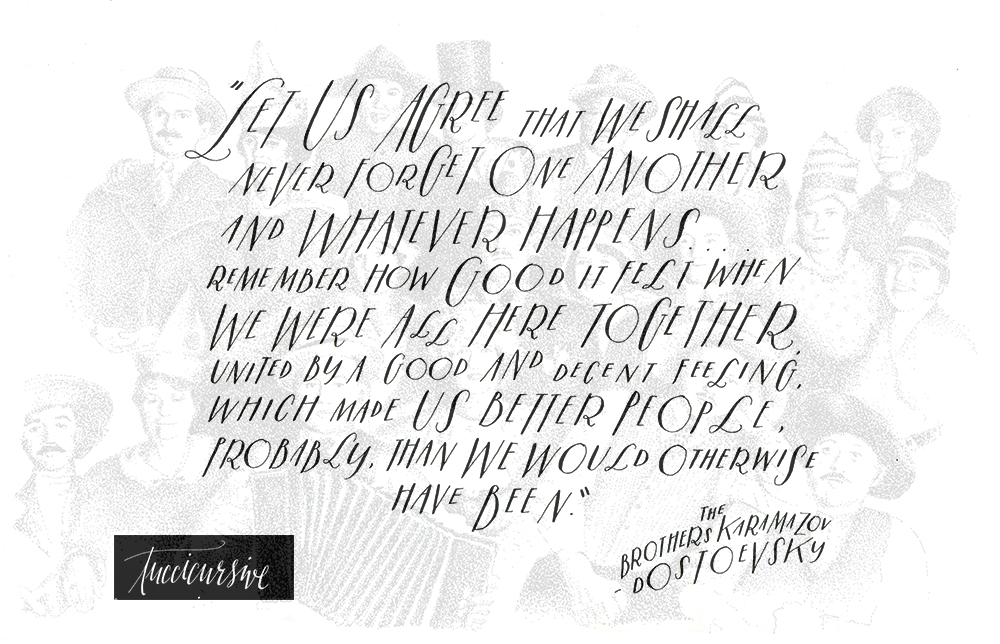 "LET US AGREE THAT WE SHALL
NEVER FORGET ONE ANOTHER
AND WHATEVER HAPPENS.....
REMEMBER HOW GOOD IT FELT WHEN
WE WERE ALL HERE TOGETHER,
UNITED BY A GOOD AND DECENT FEELING,
WHICH MADE US BETTER PEOPLE,
PROBABLY, THAN WE WOULD OTHERWISE
HAVE BEEN."
THE
BROTHERS KARAMAZOV
- DOSTOEVSKY
Tuccicursive